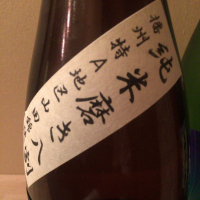 純米磨き八割
播州特A地区山田錦